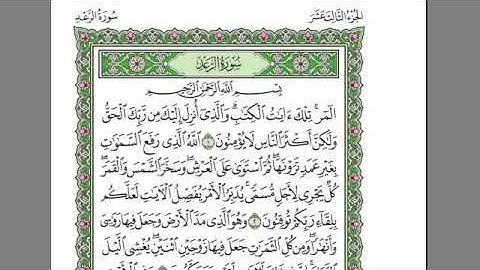 سُورَةُ الرَّعْدِ
الجُزْءُ الثَّالِثَ عَشَرَ
سُورَةُ الرَّعْدِ
بِسْمِ اللَّهِ الرَّحْمَٰنِ الرَّحِيمِ
الٓمٓر ۚ تِلْكَ ءَايَٰتُ ٱلْكِتَٰبِ ۗ وَٱلَّذِىٓ أُنزِلَ إِلَيْكَ مِن رَّبِّكَ ٱلْحَقُّ
وَلَٰكِنَّ أَكْثَرَ ٱلنَّاسِ لَا يُؤْمِنُونَ ١ ٱللَّهُ ٱلَّذِى رَفَعَ ٱلسَّمَٰوَٰتِ
بِغَيْرِ عَمَدٍ تَرَوْنَهَا ۖ ثُمَّ ٱسْتَوَىٰ عَلَى ٱلْعَرْشِ ۖ وَسَخَّرَ ٱلشَّمْسَ وَٱلْقَمَرَ ۖ
كُلٌّ يَجْرِى لِأَجَلٍ مُّسَمًّى ۚ يُدَبِّرُ ٱلْأَمْرَ يُفَصِّلُ ٱلْءَايَٰتِ لَعَلَّكُم
بِلِقَآءِ رَبِّكُمْ تُوقِنُونَ ٢ وَهُوَ ٱلَّذِى مَدَّ ٱلْأَرْضَ وَجَعَلَ فِيهَا رَوَٰسِىَ
وَأَنْهَٰرًا ۖ وَمِن كُلِّ ٱلثَّمَرَٰتِ جَعَلَ فِيهَا زَوْجَيْنِ ٱثْنَيْنِ ۖ يُغْشِى ٱلَّيْلَ